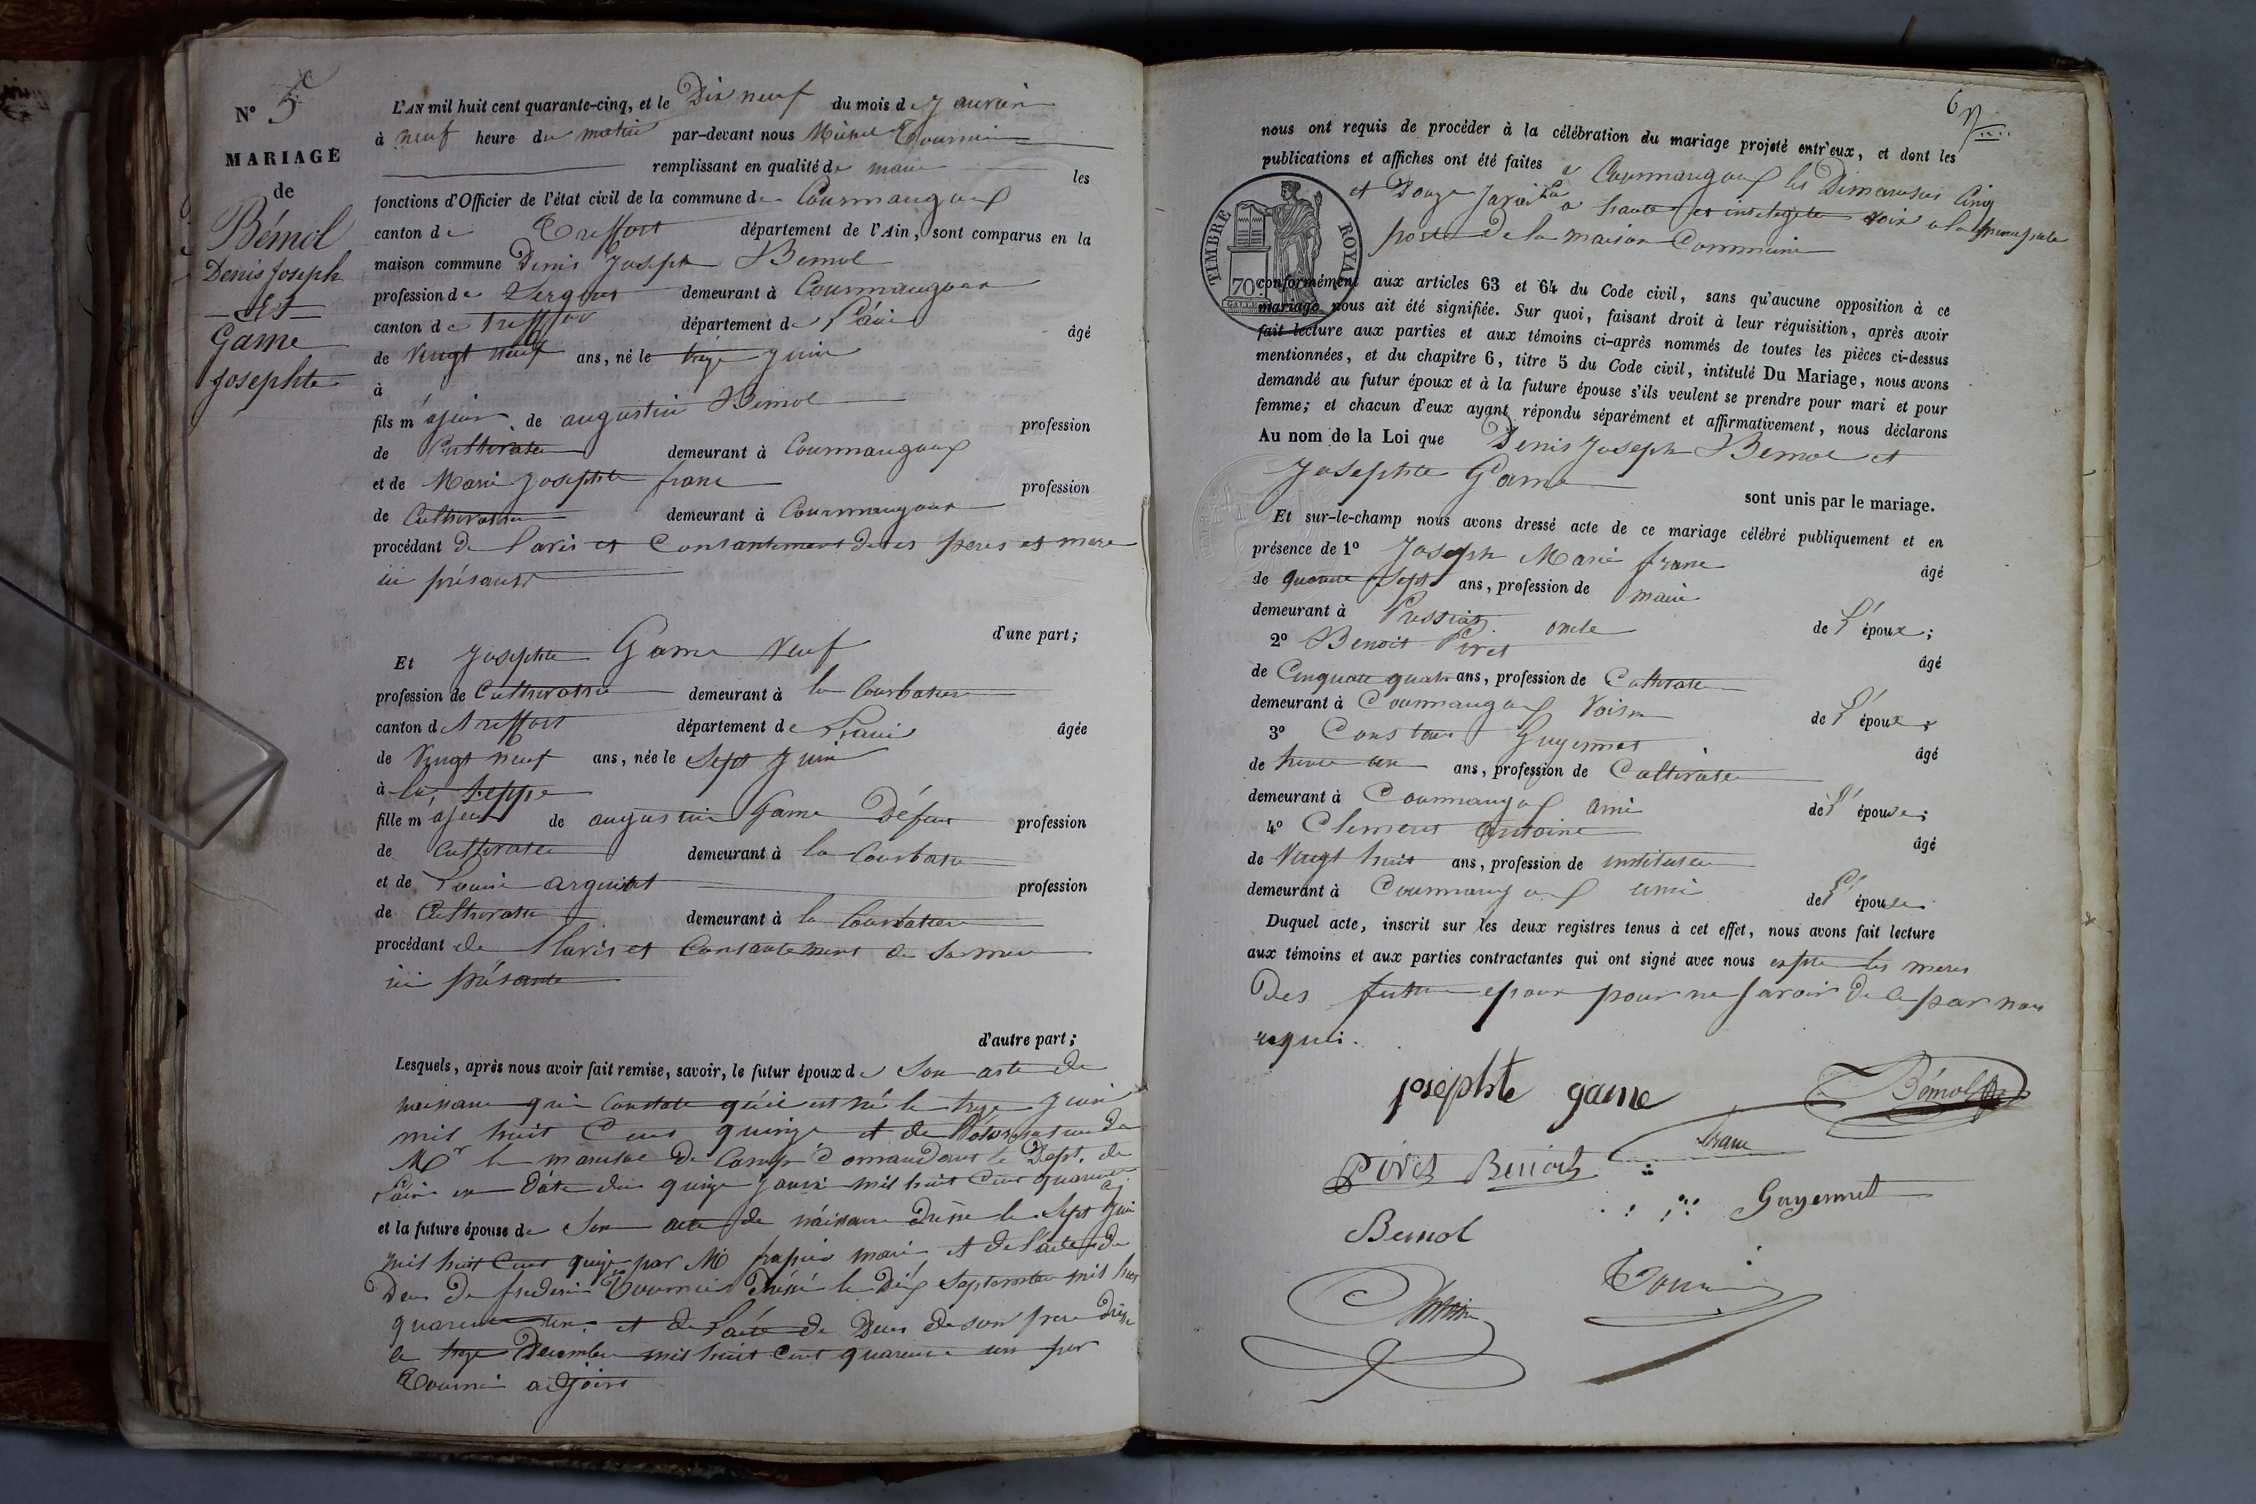 N° 5
MARIAGE
de
Bémol
Denis Joseph
Et
Game
Josephte
L'AN mil huit cent quarante-cinq, et le Dix neuf du mois de Janvier
à neuf heure du matin par-devant nous Michel Tournier
remplissant en qualité de maire les
fonctions d'Officier de l'état civil de la commune de Courmangoux
canton de Treffort département de l'Ain, sont comparus en la
maison commune Denis Joseph Bemol
profession de Sergent demeurant à Courmangoux
canton de Treffort département de l'ain âgé
de Vingt neuf ans, né le treize Juin
à
fils majeur de augustin Bemol profession
de Cultivateur demeurant à Courmangoux
et de Marie Josephte franc profession
de Cultivatrice demeurant à Courmangoux
procédant de l'avis et Consantement de ses peres et mere
ici présants
d'une part;
Et Josephte Game Veuf
profession de Cultivatrice demeurant à la Courbatiere
canton de treffort département de L'ain âgée
de Vingt neuf ans, née le Sept Juin
à la
fille majeur de augustin Game Défunt profession
de Cultivateur demeurant à la Courbatiere
et de Louise profession
de Cultivatrice demeurant à la Courbatiere
procédant de l'avis et Consantement de sa mere
ici présante
d'autre part;
Lesquels, après nous avoir fait remise, savoir, le futur époux de Son acte de
naissance qui Constate qu'il est né le treize Juin
mil huit Cent quinze et de l'autorisation de
Mr le marechal de Camp Comandant le Dept. de
l'ain en Date du quinze janvier mil huit Cent quarente cinq
et la future épouse de Son acte de naissance Dressé le Sept Juin
mil huit Cent quinze par Mr maire et de l'acte de
Deces de frederic Tournier Dressé le Dix Septembre mil huit
quarente un et de l'acte de Deces de son pere Dressé
le treize Decembre mil huit Cent quarente un par
Tournier adjoint
6
nous ont requis de procéder à la célébration du mariage projeté entr'eux, et dont les
publications et affiches ont été faites a Courmangoux les Dimanches Cinq
et Douze Janvier a haute et intelligible voix a la principale
porte De la maison Commune
TIMBRE ROYAL
70c
conformément aux articles 63 et 64 du Code civil, sans qu'aucune opposition à ce
mariage nous ait été signifiée. Sur quoi, faisant droit à leur réquisition, après avoir
fait lecture aux parties et aux témoins ci-après nommés de toutes les pièces ci-dessus
mentionnées, et du chapitre 6, titre 5 du Code civil, intitulé Du Mariage, nous avons
demandé au futur époux et à la future épouse s'ils veulent se prendre pour mari et pour
femme; et chacun d'eux ayant répondu séparément et affirmativement, nous déclarons
Au nom de la Loi que Denis Joseph Bemol et
Josephte Game
sont unis par le mariage.
Et sur-le-champ nous avons dressé acte de ce mariage célébré publiquement et en
présence de 1° Joseph Marie franc âgé
de quarante Sept ans, profession de maire
demeurant à Pressiat oncle de l'époux;
2° Benoit Piret âgé
de Cinquante quatre ans, profession de Cultivateur
demeurant à Courmangoux Voisin de l'époux;
3° Constant Guyennet âgé
de trente un ans, profession de Cultivateur
demeurant à Courmangoux ami de l'épouse;
4° Clement antoine âgé
de Vingt huit ans, profession de instituteur
demeurant à Courmangoux ami de l'épouse.
Duquel acte, inscrit sur les deux registres tenus à cet effet, nous avons fait lecture
aux témoins et aux parties contractantes qui ont signé avec nous les meres
Des futurs epoux pour ne savoir De ce par nous
requis.
josephte game
Bémol
Franc
Piret Benoit
Guyennet
Bemol
Tournier